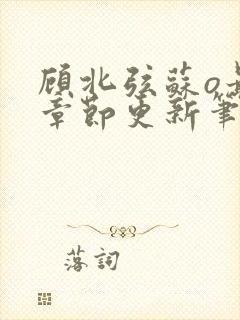 顾北弦蘇o
章節更新筆
落詞